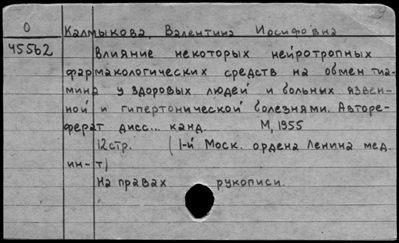 О Калмыкова, Валентина Иосифовна
45562 Влияние некоторых нейротропных
фармакологических средств на обмен тиа-
мина у здоровых людей и больных язвен-
ной и гипертонической болезнями. Авторе-
ферат дисс... канд. М, 1955
12стр. (1-й Моск. ордена Ленина мед.
ин-т)
На правах рукописи.